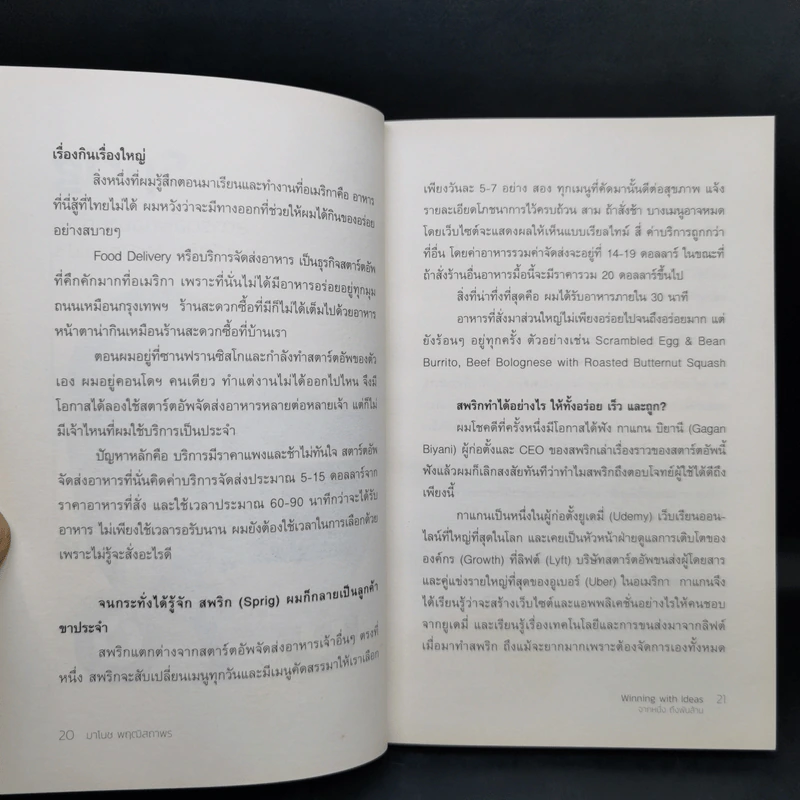 เรื่องกินเรื่องใหญ่
สิ่งหนึ่งที่ผมรู้สึกตอนมาเรียนและทำงานที่อเมริกาคือ อาหาร
ที่นี่สู้ที่ไทยไม่ได้ ผมหวังว่าจะมีทางออกที่ช่วยให้ผมได้กินของอร่อย
อย่างสบายๆ
Food Delivery หรือบริการจัดส่งอาหาร เป็นธุรกิจสตาร์ตอัพ
ที่คึกคักมากที่อเมริกา เพราะที่นั่นไม่ได้มีอาหารอร่อยอยู่ทุกมุม
ถนนเหมือนกรุงเทพฯ ร้านสะดวกซื้อที่มีก็ไม่ได้เต็มไปด้วยอาหาร
หน้าตาน่ากินเหมือนร้านสะดวกซื้อที่บ้านเรา
ตอนผมอยู่ที่ซานฟรานซิสโกและกำลังทำสตาร์ตอัพของตัว
เอง ผมอยู่คอนโดฯ คนเดียว ทำแต่งานไม่ได้ออกไปไหน จึงมี
โอกาสได้ลองใช้สตาร์ตอัพจัดส่งอาหารหลายต่อหลายเจ้า แต่ก็ไม่
มีเจ้าไหนที่ผมใช้บริการเป็นประจำ
ปัญหาหลักคือ บริการมีราคาแพงและช้าไม่ทันใจ สตาร์ตอัพ
จัดส่งอาหารที่นั่นคิดค่าบริการจัดส่งประมาณ 5-15 ดอลลาร์จาก
ราคาอาหารที่สั่ง และใช้เวลาประมาณ 60-90 นาทีกว่าจะได้รับ
อาหาร ไม่เพียงใช้เวลารอรับนาน ผมยังต้องใช้เวลาในการเลือกด้วย
เพราะไม่รู้จะสั่งอะไรดี
จนกระทั่งได้รู้จัก สพริก (Sprig) ผมก็กลายเป็นลูกค้า
ขาประจำ
สพริกแตกต่างจากสตาร์ตอัพจัดส่งอาหารเจ้าอื่นๆ ตรงที่
หนึ่ง สพริกจะสับเปลี่ยนเมนูทุกวันและมีเมนูคัดสรรมาให้เราเลือก
20 มาโนช พฤฒิสถาพร
เพียงวันละ 5-7 อย่าง สอง ทุกเมนูที่คัดมานั้นดีต่อสุขภาพ แจ้ง
รายละเอียดโภชนาการไว้ครบถ้วน สาม ถ้าสั่งช้า บางเมนูอาจหมด
โดยเว็บไซต์จะแสดงผลให้เห็นแบบเรียลไทม์ สี่ ค่าบริการถูกกว่า
ที่อื่น โดยค่าอาหารรวมค่าจัดส่งจะอยู่ที่ 14-19 ดอลลาร์ ในขณะที่
ถ้าสั่งร้านอื่นอาหารมื้อนี้จะมีราคารวม 20 ดอลลาร์ขึ้นไป
สิ่งที่น่าทึ่งที่สุดคือ ผมได้รับอาหารภายใน 30 นาที
อาหารที่สั่งมาส่วนใหญ่ไม่เพียงอร่อยไปจนถึงอร่อยมาก แต่
ยังร้อนๆ อยู่ทุกครั้ง ตัวอย่างเช่น Scrambled Egg & Bean
Burrito, Beef Bolognese with Roasted Butternut Squash
สพริกทำได้อย่างไร ให้ทั้งอร่อย เร็ว และถูก?
ผมโชคดีที่ครั้งหนึ่งมีโอกาสได้ฟัง กาแกน บิยานี (Gagan
Biyani) ผู้ก่อตั้งและ CEO ของสพริกเล่าเรื่องราวของสตาร์ตอัพนี้
ฟังแล้วผมก็เลิกสงสัยทันทีว่าทำไมสพริกถึงตอบโจทย์ผู้ใช้ได้ดีถึง
เพียงนี้
กาแกนเป็นหนึ่งในผู้ก่อตั้งยูเดมี่ (Udemy) เว็บเรียนออน-
ไลน์ที่ใหญ่ที่สุดในโลก และเคยเป็นหัวหน้าฝ่ายดูแลการเติบโตของ
องค์กร (Growth) ที่ลิฟต์ (Lyft) บริษัทสตาร์ตอัพขนส่งผู้โดยสาร
และคู่แข่งรายใหญ่ที่สุดของอูเบอร์ (Uber) ในอเมริกา กาแกนจึง
ได้เรียนรู้ว่าจะสร้างเว็บไซต์และแอพพลิเคชั่นอย่างไรให้คนชอบ
จากยูเดมี่ และเรียนรู้เรื่องเทคโนโลยีและการขนส่งมาจากลิฟต์
เมื่อมาทำสพริก ถึงแม้จะยากมากเพราะต้องจัดการเองทั้งหมด
Winning with Ideas 21
จากหนึ่ง ถึงพันล้าน